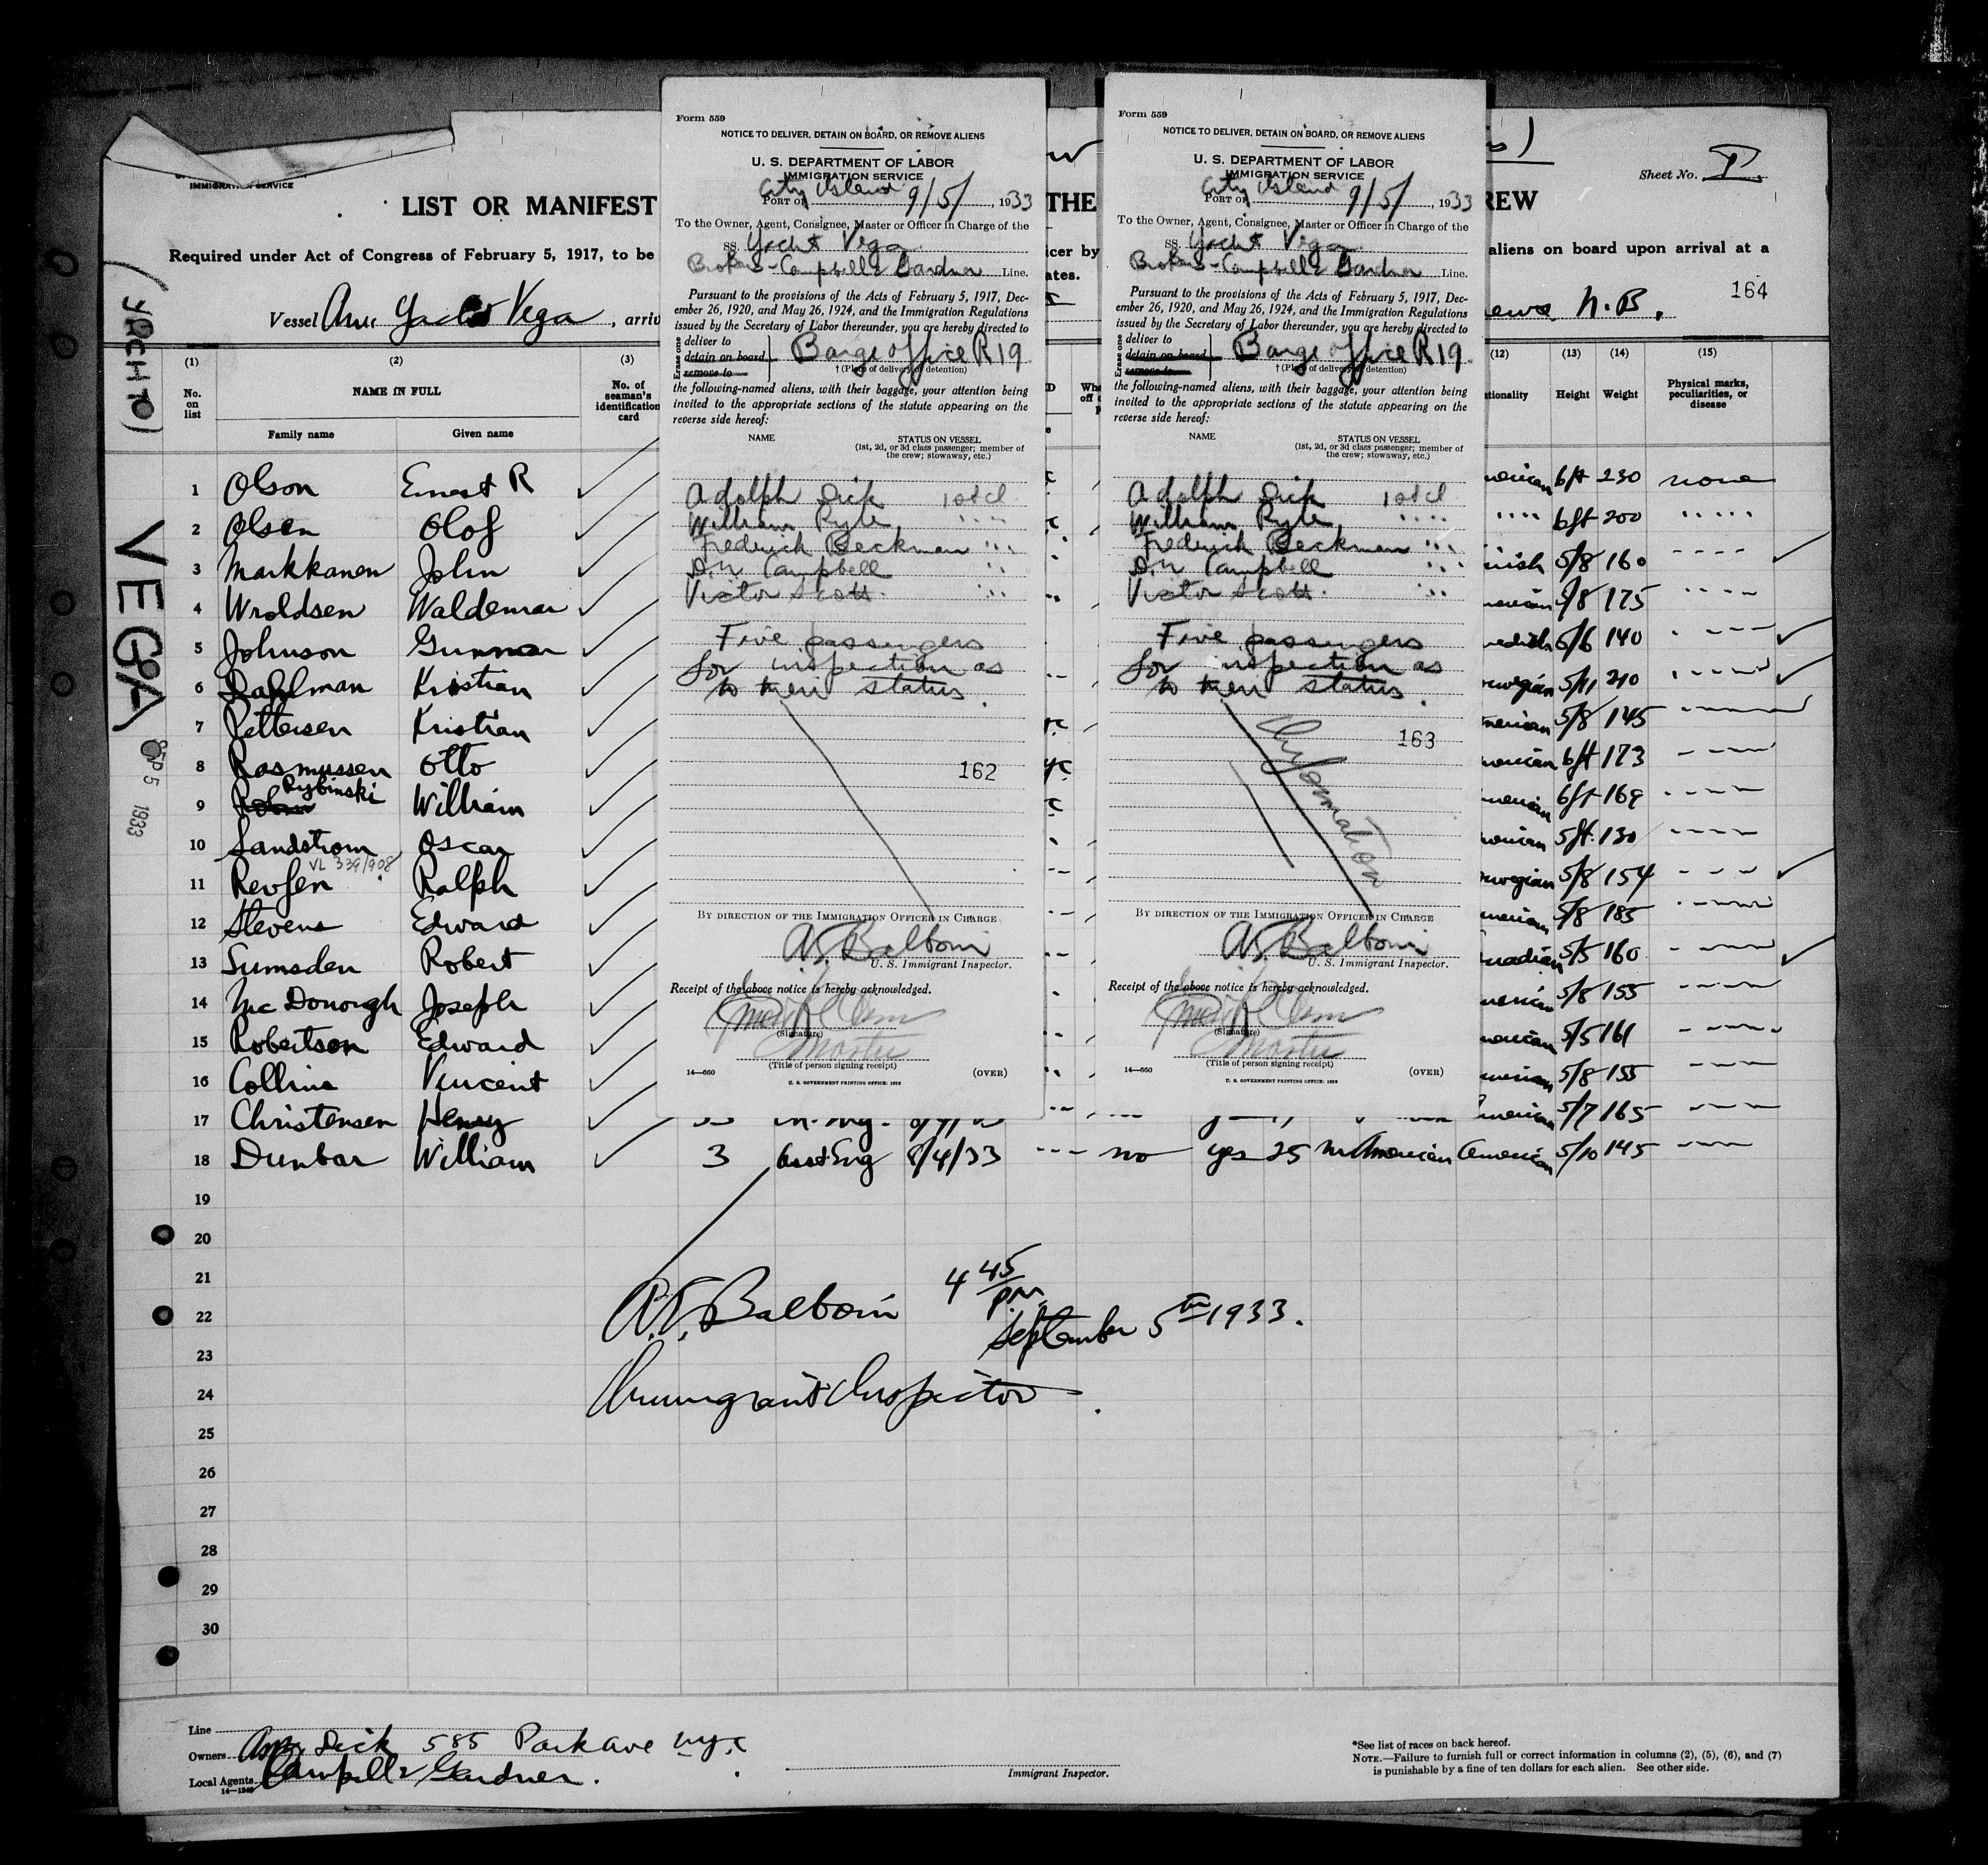 IMMIGRATION SERVICE
LIST OR MANIFEST
THE
REW
Sheet No. I
Required under Act of Congress of February 5, 1917, to be
icer by
aliens on board upon arrival at a
ates.
164
Vessel Am. Yacht Vega, arriv
N.B.
(YACHT)
VEGA
SEP 5 1933
(1) (2) (3) (12) (13) (14) (15)
No. on list
NAME IN FULL
Family name Given name
No. of seaman's identification card
Height Weight
Physical marks, peculiarities, or disease
1 Olson Ernest R 6ft 230 none
2 Olsen Olof 6ft 200
3 Markkanen John 5/8 160
4 Wroldsen Waldemar 5/8 175
5 Johnson Gunnar 5/6 140
6 Dahlman Kristian 5/11 210
7 Pettersen Kristian 5/8 145
8 Rasmussen Otto 6ft 173
9 Rybinski William 6ft 169
10 Sandstrom Oscar 5ft 130
VL 339/908
11 Ralph 5/8 154
12 Stevens Edward 5/8 185
13 Sumsden Robert 5/5 160
14 McDonough Joseph 5/8 155
15 Robertson Edward 5/5 161
16 Collins Vincent 5/8 155
17 Christensen Henry 5/7 165
18 Dunbar William 3 Asst Eng 8/4/33 no yes 25 M American American 5/10 145
19
20
21
22
23
24
25
26
27
28
29
30
A.F. Balboni 4 45 P.M.
September 5th 1933.
Immigrant Inspector
Line
Owners Dick 585 Park Ave N.Y.C
Local Agents Campbell & Gardner.
14—1240
Immigrant Inspector.
*See list of races on back hereof.
NOTE.—Failure to furnish full or correct information in columns (2), (5), (6), and (7)
is punishable by a fine of ten dollars for each alien. See other side.
Form 559
NOTICE TO DELIVER, DETAIN ON BOARD, OR REMOVE ALIENS
U. S. DEPARTMENT OF LABOR
IMMIGRATION SERVICE
City Island
PORT OF 9/5/, 1933
To the Owner, Agent, Consignee, Master or Officer in Charge of the
SS. Yacht Vega
Brokers - Campbell & Gardner Line.
Pursuant to the provisions of the Acts of February 5, 1917, Dec-
ember 26, 1920, and May 26, 1924, and the Immigration Regulations
issued by the Secretary of Labor thereunder, you are hereby directed to
Erase one
deliver to
detain on board
remove to
Barge office R 19
†(Place of delivery or detention)
the following-named aliens, with their baggage, your attention being
invited to the appropriate sections of the statute appearing on the
reverse side hereof:
NAME STATUS ON VESSEL
(1st, 2d, or 3d class passenger; member of
the crew; stowaway, etc.)
Adolph Dick 1st cl
William Ryle "
Frederick Beckman "
D.N. Campbell "
Victor Scott "
Five passengers
for inspection as
to their status.
162
BY DIRECTION OF THE IMMIGRATION OFFICER IN CHARGE
A.F. Balboni
U. S. Immigrant Inspector.
Receipt of the above notice is hereby acknowledged.
(Signature)
Master
(Title of person signing receipt)
14—660 (OVER)
U. S. GOVERNMENT PRINTING OFFICE: 1929
Form 559
NOTICE TO DELIVER, DETAIN ON BOARD, OR REMOVE ALIENS
U. S. DEPARTMENT OF LABOR
IMMIGRATION SERVICE
City Island
PORT OF 9/5/, 1933
To the Owner, Agent, Consignee, Master or Officer in Charge of the
SS. Yacht Vega
Brokers - Campbell & Gardner Line.
Pursuant to the provisions of the Acts of February 5, 1917, Dec-
ember 26, 1920, and May 26, 1924, and the Immigration Regulations
issued by the Secretary of Labor thereunder, you are hereby directed to
Erase one
deliver to
detain on board
remove to
Barge office R 19.
†(Place of delivery or detention)
the following-named aliens, with their baggage, your attention being
invited to the appropriate sections of the statute appearing on the
reverse side hereof:
NAME STATUS ON VESSEL
(1st, 2d, or 3d class passenger; member of
the crew; stowaway, etc.)
Adolph Dick 1st cl
William Ryle "
Frederick Beckman "
D.N. Campbell "
Victor Scott "
Five passengers
for inspection as
to their status.
163
Information
BY DIRECTION OF THE IMMIGRATION OFFICER IN CHARGE
A.F. Balboni
U. S. Immigrant Inspector.
Receipt of the above notice is hereby acknowledged.
(Signature)
Master
(Title of person signing receipt)
14—660 (OVER)
U. S. GOVERNMENT PRINTING OFFICE: 1929